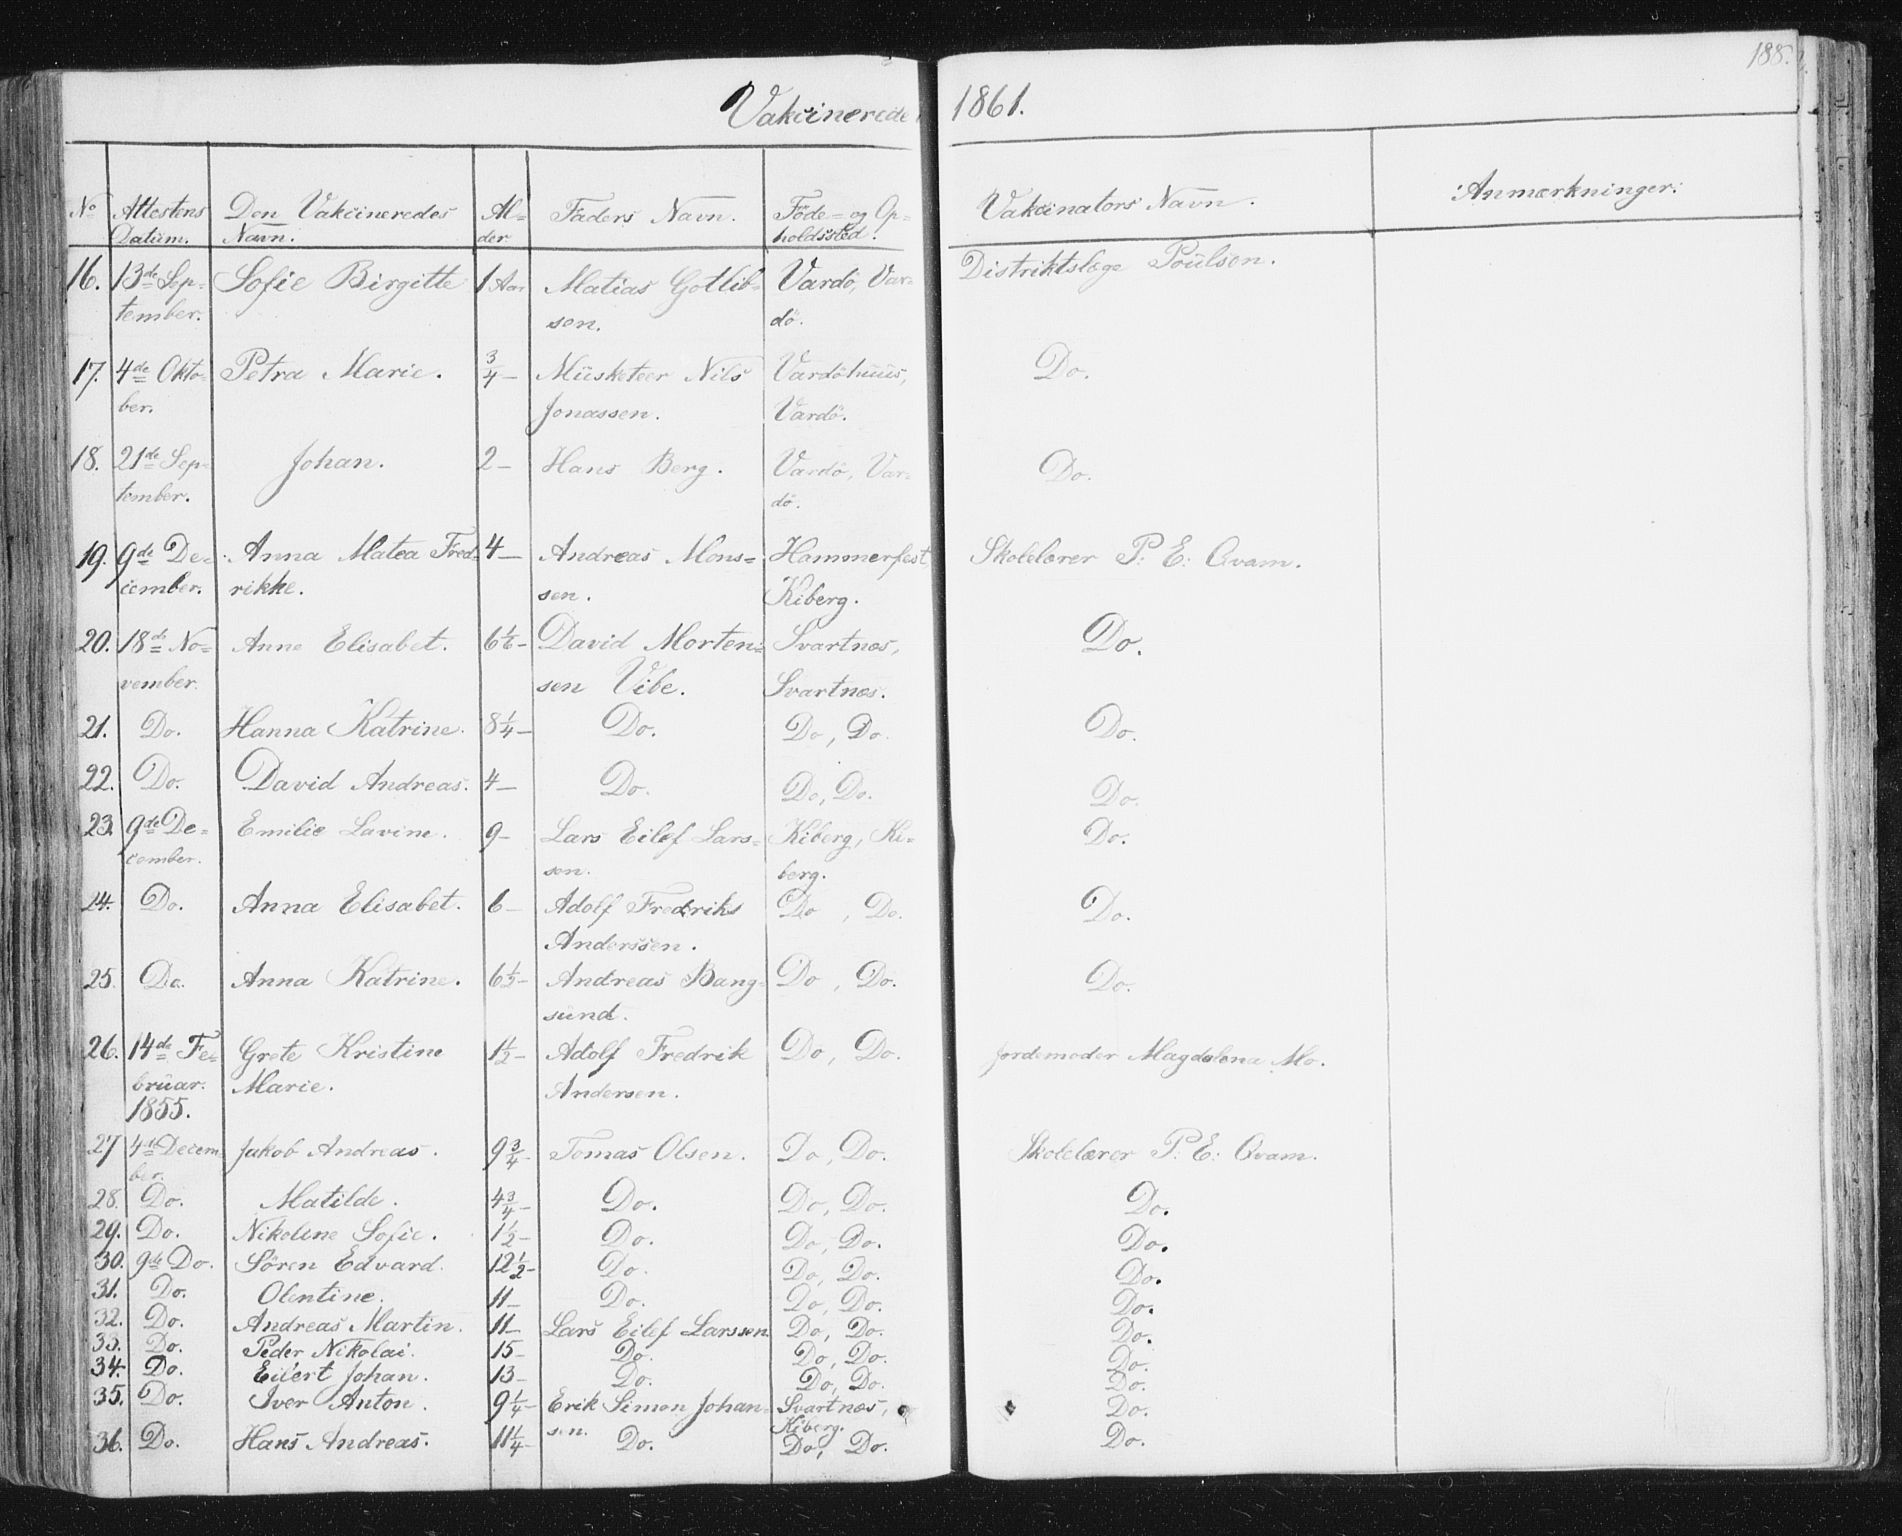 188.
Vakcinerede 1861.
No Attestens Datum. Den Vakcineredes Navn. Al=der Faders Navn. Föde= og Op=holdssted. Vakcinators Navn. Anmærkninger.
16. 13de Sep= Sofie Birgitte 1 Aar Matias Gotlib= Vardö, Var= Distriktslæge Poulsen.
tember. sen. dö.
17. 4de Okto= Petra Marie. 3/4 – Musketeer Nils Vardöhuus, Do.
ber. Jonassen. Vardö.
18. 21de Sep= Johan. 2 – Hans Berg. Vardö, Var= Do.
tember. dö.
19. 9de De= Anna Matea Fred= 4 – Andreas Mons= Hammerfest, Skolelærer P: E: Qvam.
cember. rikke. sen. Kiberg.
20. 18de No= Anne Elisabet. 6 1/6 – David Morten= Svartnæs, Do.
vember. sen Vibe. Svartnæs.
21. Do. Hanna Katrine. 8 1/4 – Do. Do, Do. Do.
22. Do. David Andreas. 4 – Do. Do, Do. Do.
23. 9de De= Emilie Lavine. 9 – Lars Eilef Lars= Kiberg, Ki= Do.
cember. sen. berg.
24. Do. Anna Elisabet. 6 – Adolf Fredriks Do, Do. Do.
Anderssen.
25. Do. Anna Katrine. 6 1/2 – Andreas Bang= Do, Do. Do.
sund.
26. 14de Fe= Grete Kristine 1 1/2 – Adolf Fredrik Do, Do. Jordemoder Magdalena Mo.
bruar. Marie. Andersen.
1855.
27 4de Decem= Jakob Andreas. 9 3/4 – Tomas Olsen. Do, Do. Skolelærer P: E: Qvam.
ber.
28. Do. Matilde. 4 3/4 – Do. Do, Do. Do.
29. Do. Nikoline Sofie. 1 1/2 – Do. Do, Do. Do.
30. 9de Do. Sören Edvard. 12 1/2 – Do. Do, Do. Do.
31. Do. Olentine. 11 – Do. Do, Do. Do.
32. Do. Andreas Martin. 11 – Lars Eilef Larssen. Do, Do. Do.
33. Do. Peder Nikolai. 15 – Do. Do, Do. Do.
34. Do. Eilert Johan. 13 – Do. Do, Do. Do.
35. Do. Iver Anton. 9 1/4 – Erik Simon Johan= Svartnæs, Do.
sen. Kiberg.
36. Do. Hans Andreas. 11 1/4 – Do. Do, Do. Do.